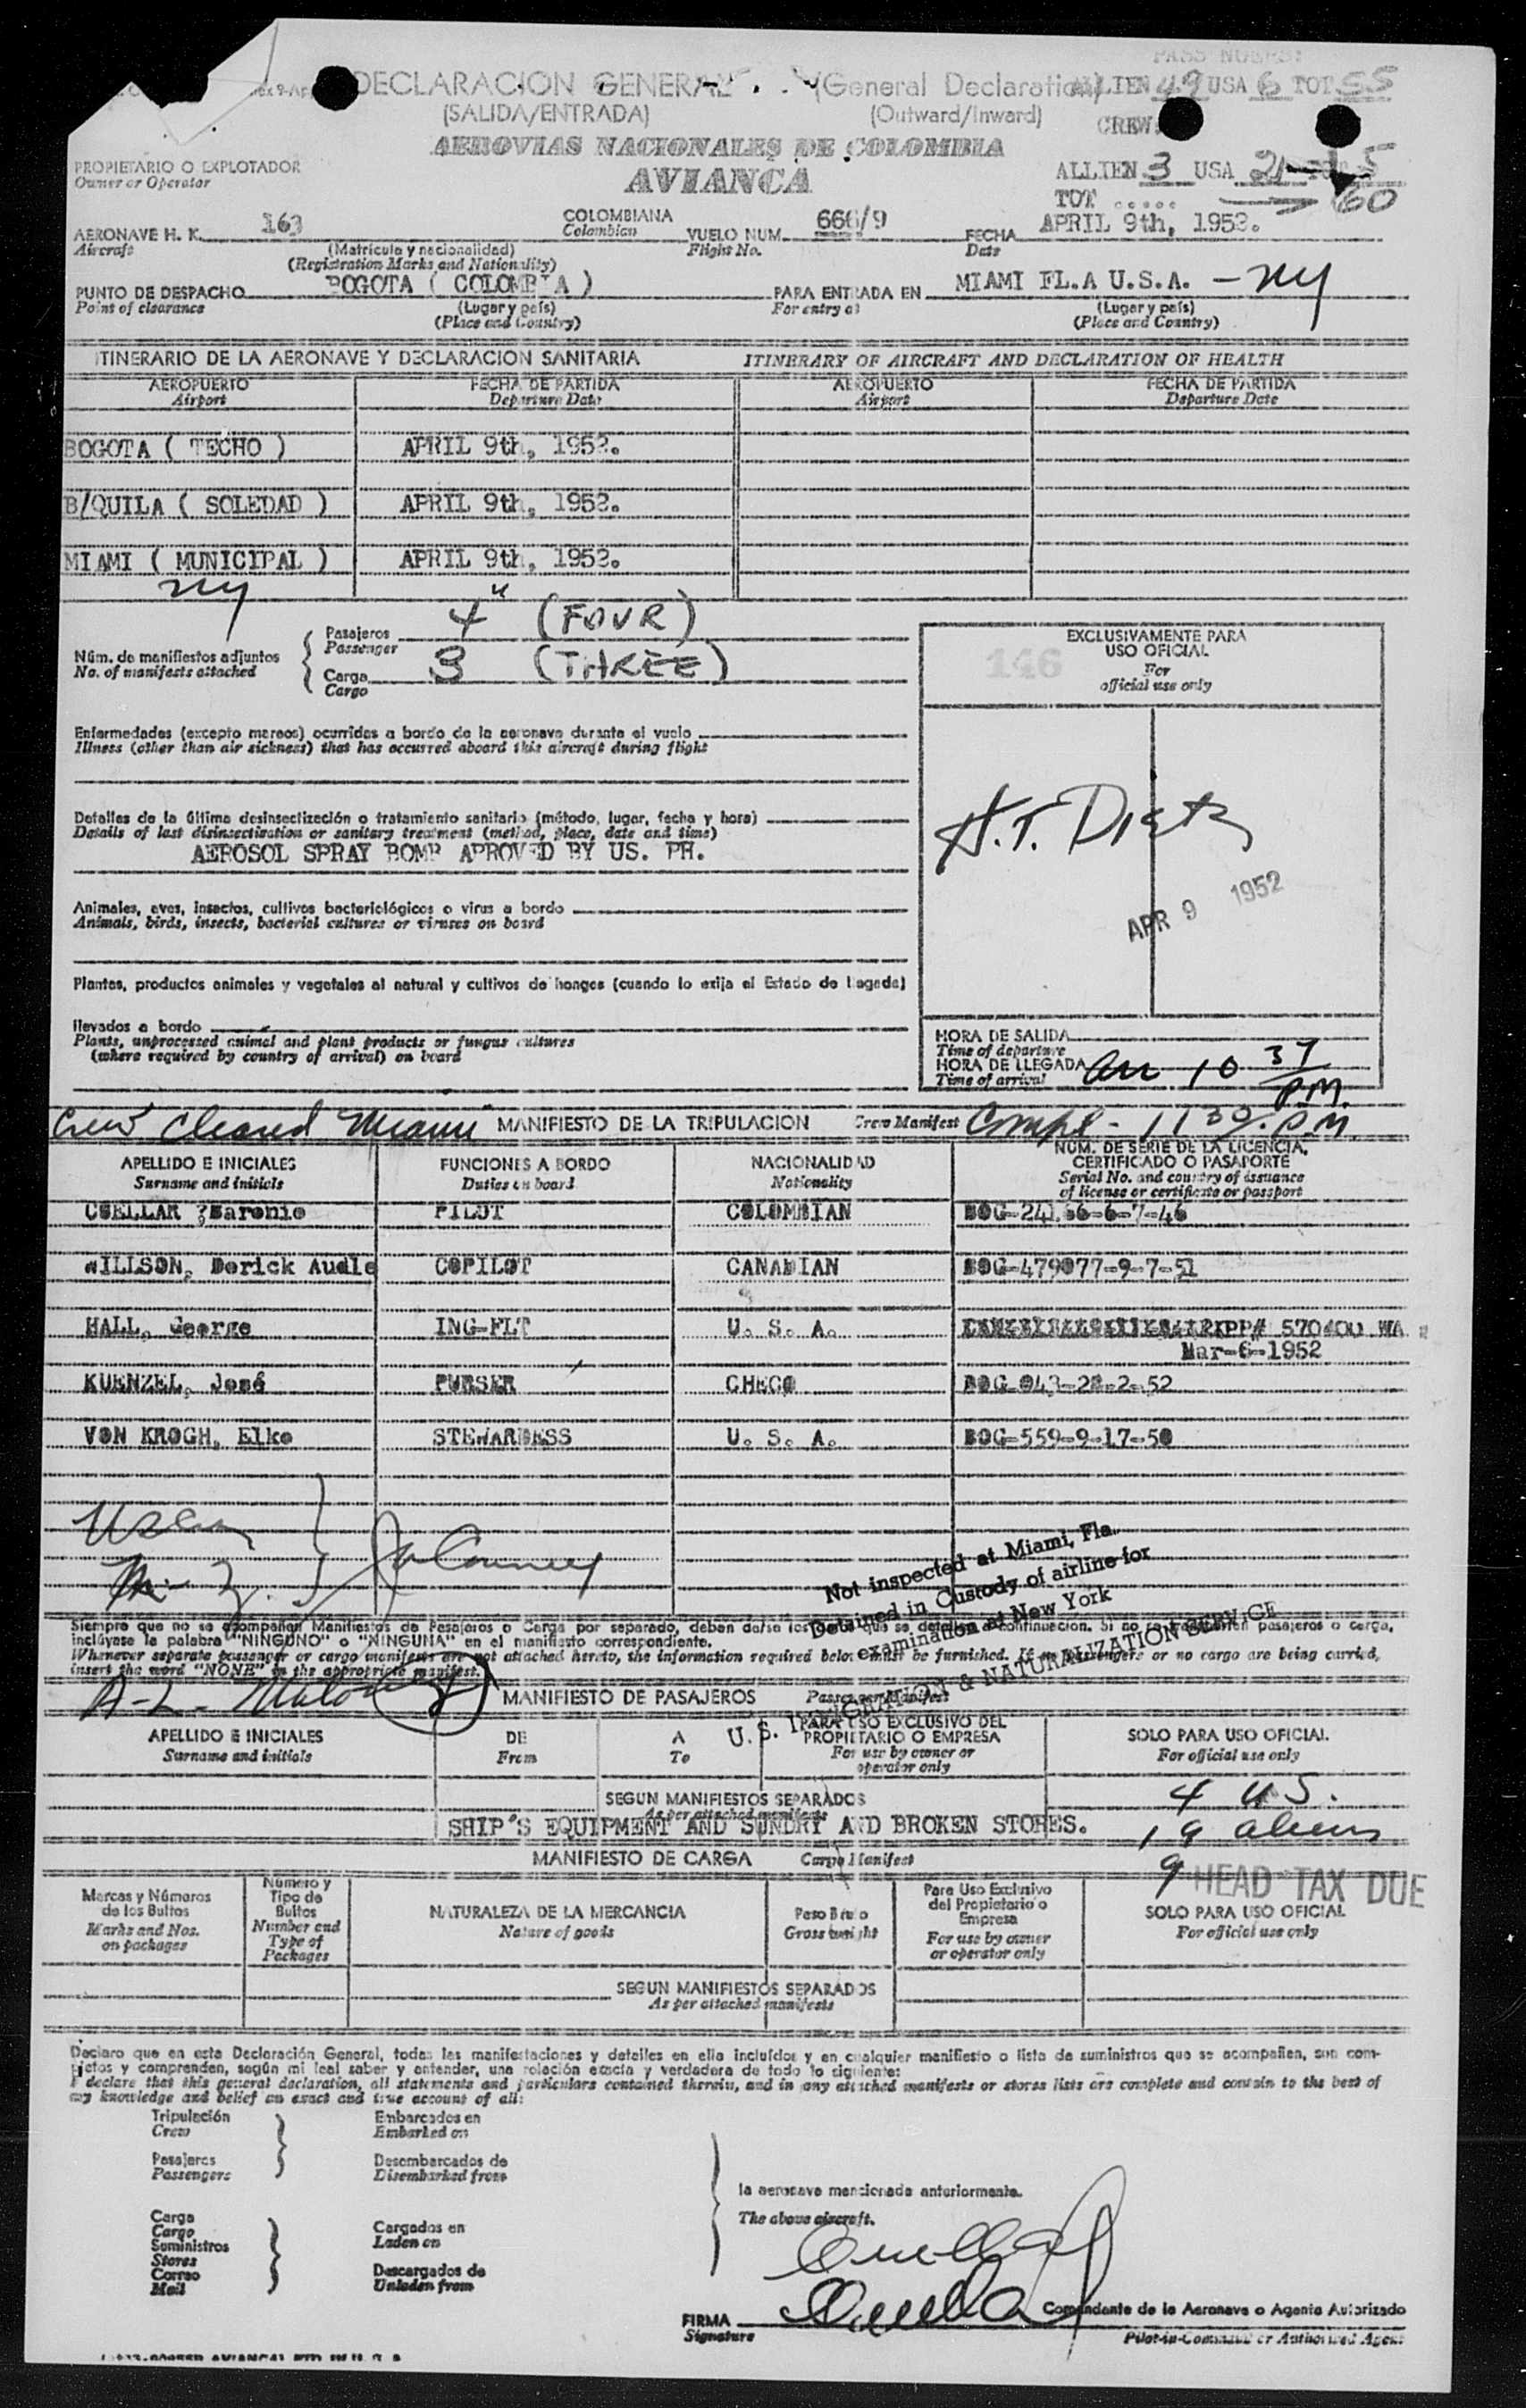 PASS NUMBS:
DECLARACION GENERAL (General Declaration) ALLIEN 49 USA 6 TOT 55
(SALIDA/ENTRADA) (Outward/Inward) CREW:
AEROVIAS NACIONALES DE COLOMBIA
PROPIETARIO O EXPLOTADOR
Owner or Operator
AVIANCA
ALLIEN 3 USA 2
TOT ..... 60
AERONAVE H. K. 163 COLOMBIANA VUELO NUM. 666/9 FECHA APRIL 9th, 1952.
Aircraft (Matrícula y nacionalidad) Colombian Flight No. Date
(Registration Marks and Nationality)
PUNTO DE DESPACHO BOGOTA ( COLOMBIA ) PARA ENTRADA EN MIAMI FL.A U.S.A. - NY
Point of clearance (Lugar y país) For entry at (Lugar y país)
(Place and Country) (Place and Country)
ITINERARIO DE LA AERONAVE Y DECLARACION SANITARIA ITINERARY OF AIRCRAFT AND DECLARATION OF HEALTH
AEROPUERTO FECHA DE PARTIDA AEROPUERTO FECHA DE PARTIDA
Airport Departure Date Airport Departure Date
BOGOTA ( TECHO ) APRIL 9th, 1952.
B/QUILA ( SOLEDAD ) APRIL 9th, 1952.
MIAMI ( MUNICIPAL ) APRIL 9th, 1952.
NY "
Núm. de manifiestos adjuntos
No. of manifests attached
Pasajeros 4 (FOUR)
Passenger
Carga 3 (THREE)
Cargo
EXCLUSIVAMENTE PARA
USO OFICIAL
For
official use only
146
Enfermedades (excepto mareos) ocurridas a bordo de la aeronave durante el vuelo
Illness (other than air sickness) that has occurred aboard this aircraft during flight
Detalles de la última desinsectización o tratamiento sanitario (método, lugar, fecha y hora)
Details of last disinsectization or sanitary treatment (method, place, date and time)
AEROSOL SPRAY BOMB APROVED BY US. PH.
H.T. Dietz
APR 9 1952
Animales, aves, insectos, cultivos bacteriológicos o virus a bordo
Animals, birds, insects, bacterial cultures or viruses on board
Plantas, productos animales y vegetales al natural y cultivos de hongos (cuando lo exija el Estado de llegada)
llevados a bordo
Plants, unprocessed animal and plant products or fungus cultures
(where required by country of arrival) on board
HORA DE SALIDA
Time of departure
HORA DE LLEGADA
Time of arrival
Arr 10 37 P.M.
Crew Cleared Miami MANIFIESTO DE LA TRIPULACION Crew Manifest Compl - 11 30 P.M.
APELLIDO E INICIALES FUNCIONES A BORDO NACIONALIDAD NUM. DE SERIE DE LA LICENCIA, CERTIFICADO O PASAPORTE
Surname and initials Duties on board Nationality Serial No. and country of issuance of license or certificate or passport
CUELLAR ,Baronio PILOT COLOMBIAN BOG-24166-6-7-46
WILLSON, Derick Audle COPILOT CANADIAN BOG-479077-9-7-51
HALL, George ING-FLT U. S. A. PP# 570400 WA
Mar-6-1952
KUENZEL, José PURSER CHECO BOG-043-28-2-52
VON KROGH, Elke STEWARDESS U. S. A. BOG-559-9-17-50
Not inspected at Miami, Fla.
Detained in Custody of airline for
examination at New York
U. S. IMMIGRATION & NATURALIZATION SERVICE
Siempre que no se acompañen Manifiestos de Pasajeros o Carga por separado, deben darse los datos que se detallan a continuación. Si no se transportan pasajeros o carga,
inclúyase la palabra "NINGUNO" o "NINGUNA" en el manifiesto correspondiente.
Whenever separate passenger or cargo manifests are not attached hereto, the information required below must be furnished. If no passengers or no cargo are being carried,
insert the word "NONE" in the appropriate manifest.
MANIFIESTO DE PASAJEROS Passenger Manifest
APELLIDO E INICIALES DE A PARA USO EXCLUSIVO DEL PROPIETARIO O EMPRESA SOLO PARA USO OFICIAL
Surname and initials From To For use by owner or operator only For official use only
SEGUN MANIFIESTOS SEPARADOS 4 US.
As per attached manifests
SHIP'S EQUIPMENT AND SUNDRY AND BROKEN STORES. 19 aliens
MANIFIESTO DE CARGA Cargo Manifest
9 HEAD TAX DUE
Marcas y Números de los Bultos
Marks and Nos. on packages
Número y Tipo de Bultos
Number and Type of Packages
NATURALEZA DE LA MERCANCIA
Nature of goods
Peso Bruto
Gross weight
Para Uso Exclusivo del Propietario o Empresa
For use by owner or operator only
SOLO PARA USO OFICIAL
For official use only
SEGUN MANIFIESTOS SEPARADOS
As per attached manifests
Declaro que en esta Declaración General, todas las manifestaciones y detalles en ella incluídos y en cualquier manifiesto o lista de suministros que se acompañen, son com-
pletos y comprenden, según mi leal saber y entender, una relación exacta y verdadera de todo lo siguiente:
I declare that this general declaration, all statements and particulars contained therein, and in any attached manifests or stores lists are complete and contain to the best of
my knowledge and belief an exact and true account of all:
Tripulación Embarcados en
Crew Embarked on
Pasajeros Desembarcados de
Passengers Disembarked from
la aeronave mencionada anteriormente.
The above aircraft.
Carga
Cargo Cargados en
Suministros Laden on
Stores
Correo Descargados de
Mail Unladen from
FIRMA Cuellar Comandante de la Aeronave o Agente Autorizado
Signature Pilot-in-Command or Authorised Agent